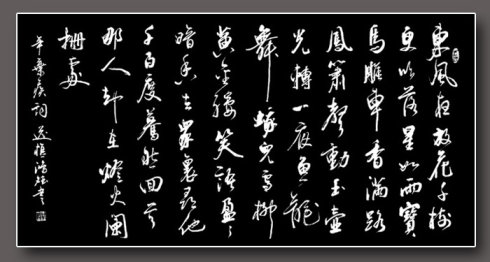 東風夜放花千樹
更吹落星如雨寶
馬雕車香滿路
鳳簫聲動玉壺
光轉一夜魚龍
舞蛾兒雪柳
黃金縷笑語盈々
暗香去眾裏尋他
千百度驀然回首
那人卻在燈火闌
珊處
辛棄疾詞 書